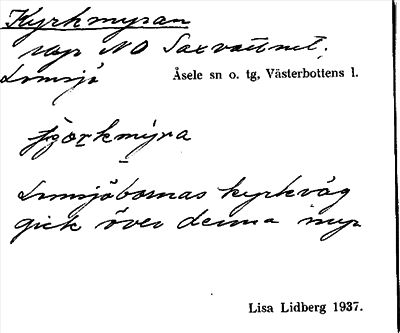 Kyrkmyran
myr NO Saxvattnet.
Lomsjö Åsele sn o. tg, Västerbottens l.
Lomsjöbornas kyrkväg
gick över denna myr
Lisa Lidberg 1937.